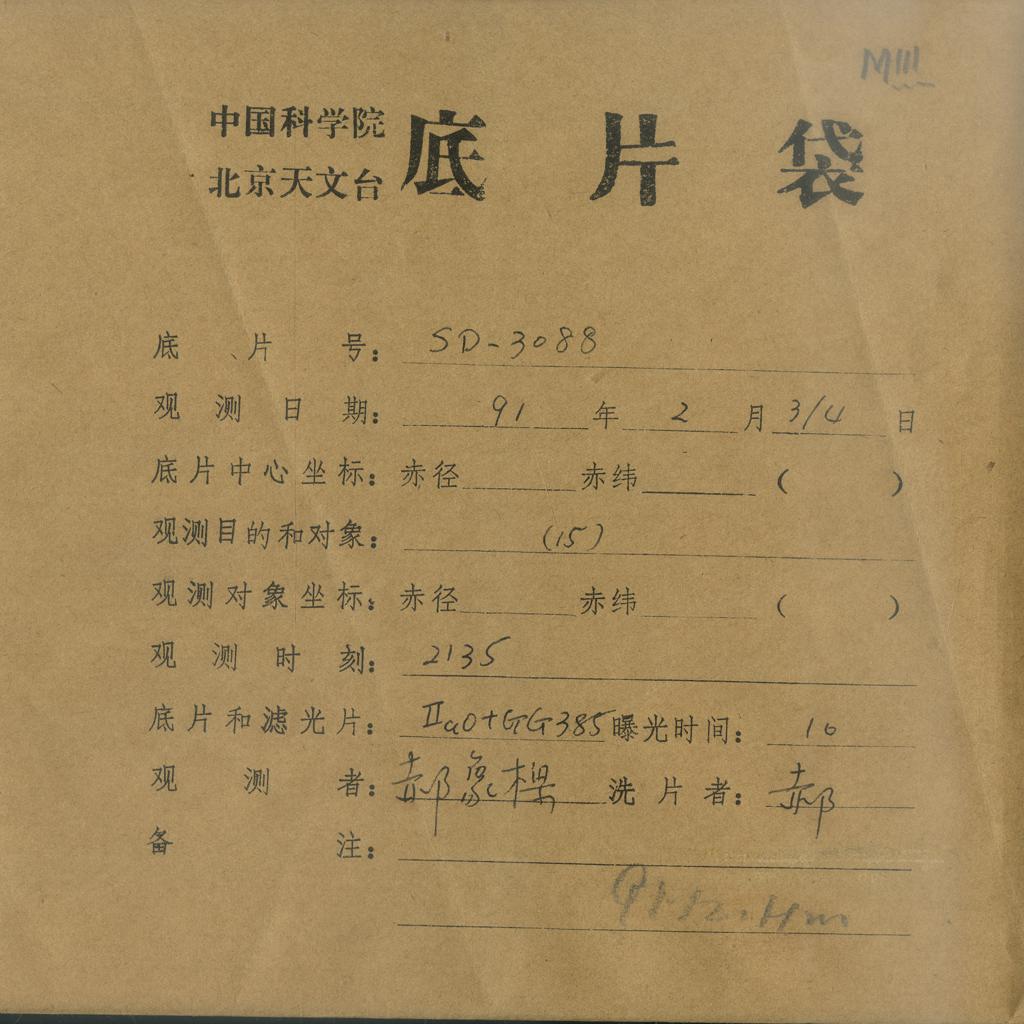 M111
中国科学院
北京天文台
底片袋
底片号： SD-3088
观测日期： 91 年 2 月 3/4 日
底片中心坐标： 赤径 赤纬 （ ）
观测目的和对象： (15)
观测对象坐标： 赤径 赤纬 （ ）
观测时刻： 2135
底片和滤光片： IIaO+GG385 曝光时间： 10
观测者： 郝象樑 洗片者： 郝
备注：